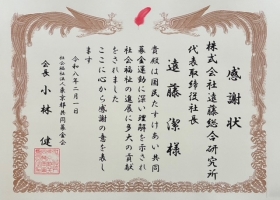 感謝状
株式会社遠藤総合研究所
代表取締役社長
遠藤 潔 様
貴殿は国民たすけあい共同
募金運動に深い理解を示され
社会福祉の進展に多大の貢献
をされました
ここに心から感謝の意を表し
ます
令和八年二月一日
社会福祉法人東京都共同募金会
会長 小林 健